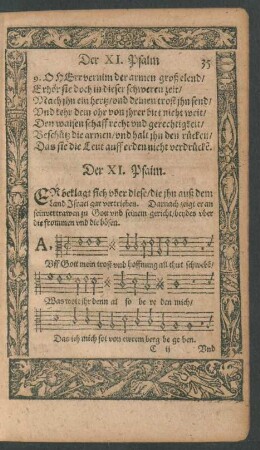 Der XI. Psalm 35
9. O HErr vernim der armen groß elend/
Erhör sie doch in dieser schweren zeit/
Mach jhn ein hertz/ vnd deinen trost jhn send/
Vnd kehr dein ohr von jhrer bitt nicht weit/
Den waisen schaff recht vnd gerechtigkeit/
Beschütz die armen/ vnd halt jhn den rücken/
Das sie die Leut auff erden nicht verdrückẽ.
Der XI. Psalm.
ER beklagt sich vber diese/ die jhn auß dem
land Israel gar vertrieben. Darnach zeigt er an
sein vertrawen zu Gott vnd seinem gericht/ beydes vber
die frommen vnd die bösen.
A.
Vff Gott mein trost vnd hoffnung all thut schwebẽ/
Was wolt jhr denn al so be re den mich/
Das ich mich sol von ewrem berg be ge ben.
E ij Vnd